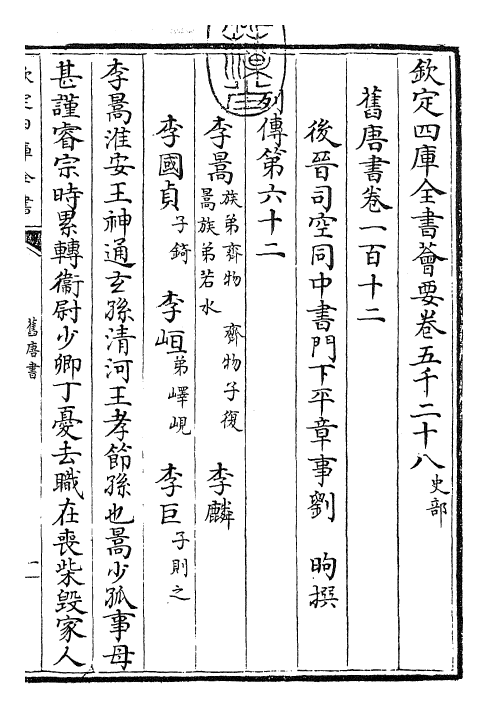 欽定四庫全書薈要卷五千二十八 史部
舊唐書卷一百十二
後晉司空同中書門下平章事劉 昫撰
列傳第六十二
李暠 族弟齊物 齊物子復 暠族弟若水 李麟
李國貞 子錡 李峘 弟嶧峴 李巨 子則之
李暠淮安王神通玄孫清河王孝節孫也暠少孤事母
甚謹睿宗時累轉衛尉少卿丁憂去職在喪柴毀家人
欽定四庫全書
舊唐書
一